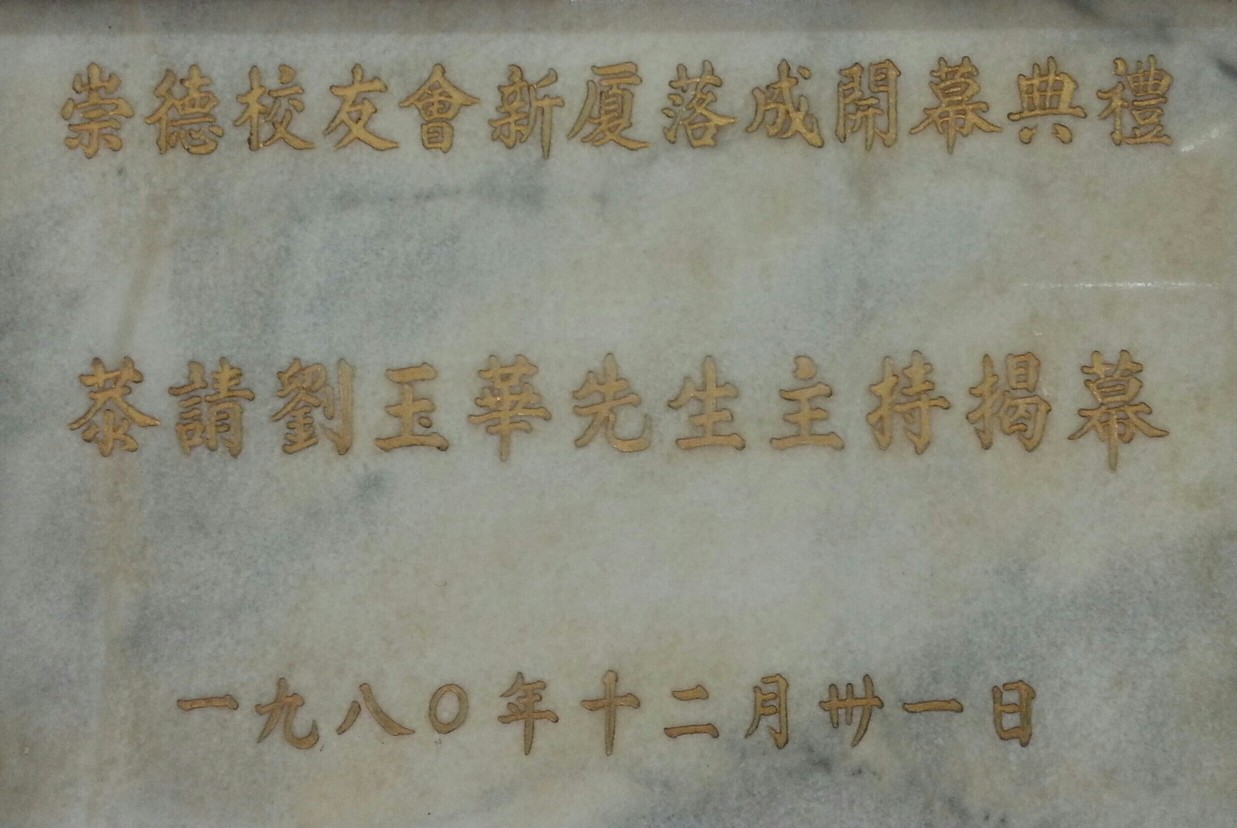 崇德校友會新厦落成開幕典禮
恭請劉玉華先生主持揭幕
一九八〇年十二月卅一日